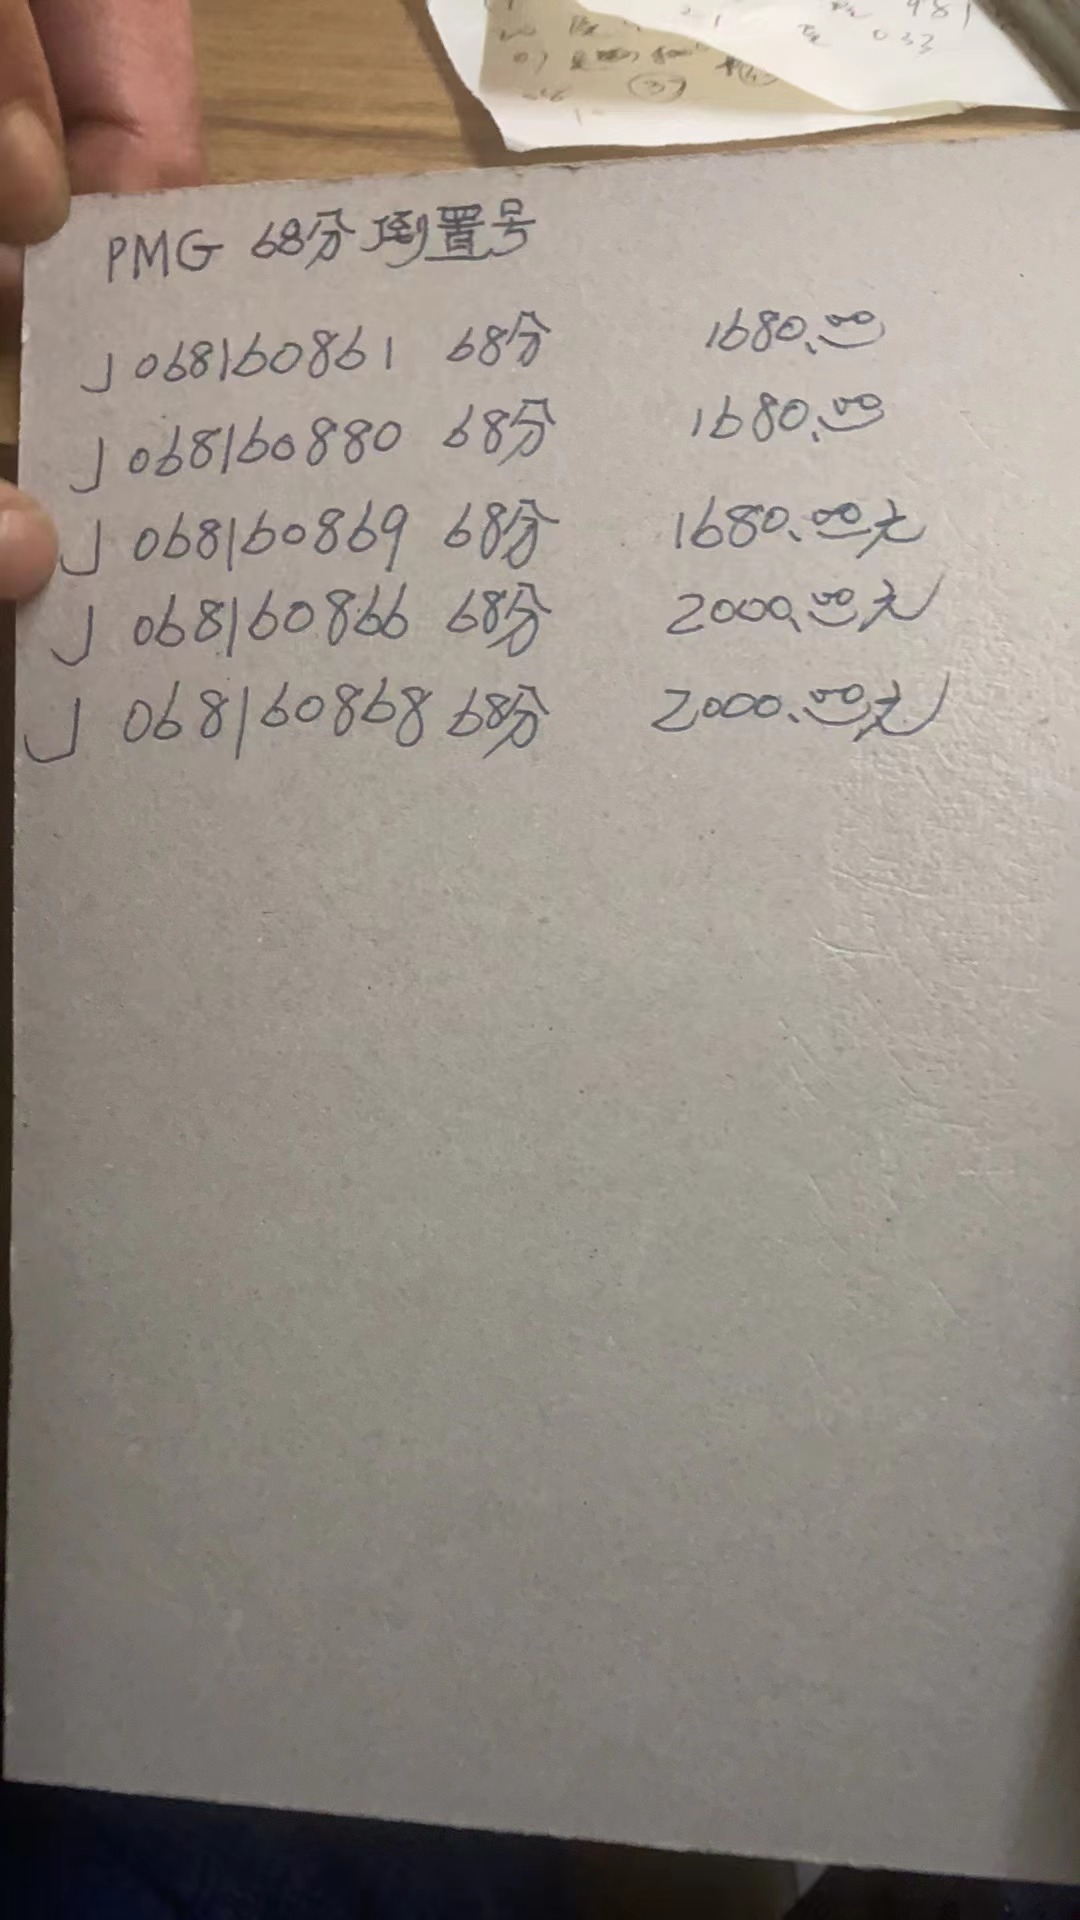 981
033
37
PMG 68分倒置号
J068160861 68分 1680.00
J068160880 68分 1680.00
J068160869 68分 1680.00元
J068160866 68分 2000.00元
J068160868 68分 2000.00元